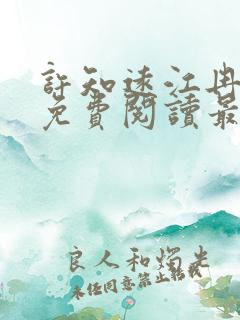 許知遠江冉
免費閱讀最
良人和燭光
未经同意禁止转载